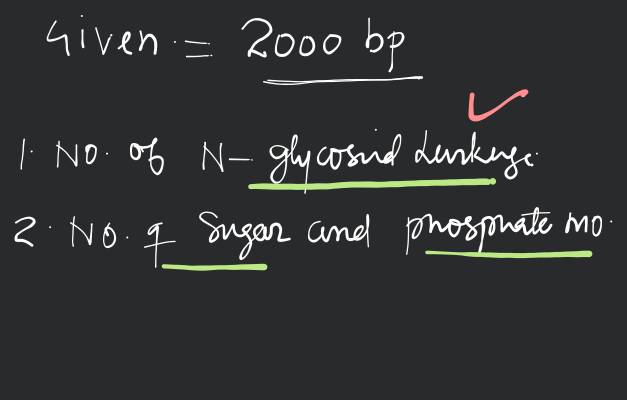 Given := 2000 bp
1. No. of N- glycosid Linkage.
2. No. of Sugar and phosphate mo.